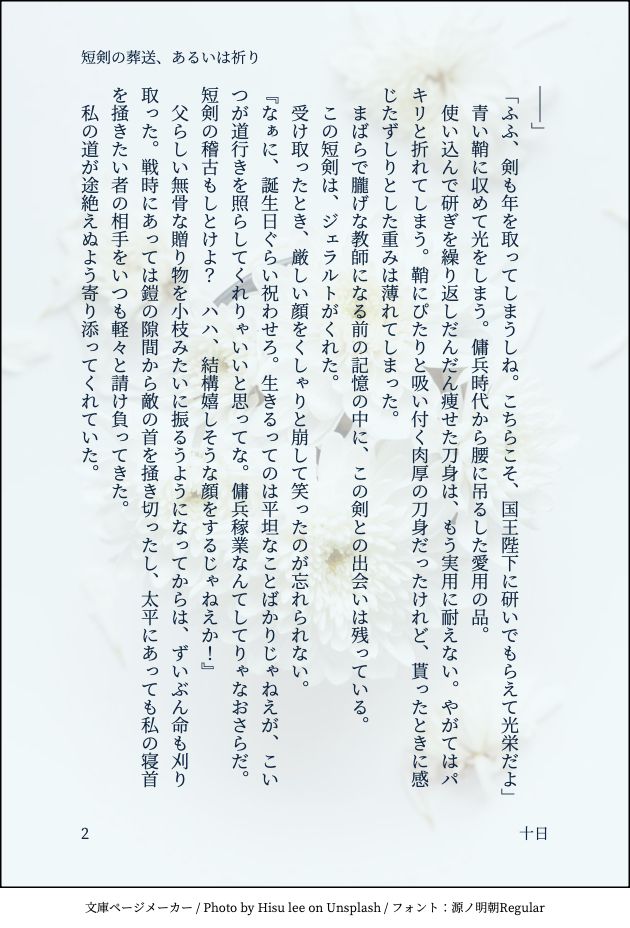 短剣の葬送、あるいは祈り
――」
「ふふ、剣も年を取ってしまうしね。こちらこそ、国王陛下に研いでもらえて光栄だよ」
青い鞘に収めて光をしまう。傭兵時代から腰に吊るした愛用の品。
使い込んで研ぎを繰り返しだんだん痩せた刀身は、もう実用に耐えない。やがてはパ
キリと折れてしまう。鞘にぴたりと吸い付く肉厚の刀身だったけれど、貰ったときに感
じたずしりとした重みは薄れてしまった。
まばらで朧げな教師になる前の記憶の中に、この剣との出会いは残っている。
この短剣は、ジェラルトがくれた。
受け取ったとき、厳しい顔をくしゃりと崩して笑ったのが忘れられない。
『なぁに、誕生日ぐらい祝わせろ。生きるってのは平坦なことばかりじゃねえが、こい
つが道行きを照らしてくれりゃいいと思ってな。傭兵稼業なんてしてりゃなおさらだ。
短剣の稽古もしとけよ？　ハハ、結構嬉しそうな顔をするじゃねえか！』
父らしい無骨な贈り物を小枝みたいに振るうようになってからは、ずいぶん命も刈り
取った。戦時にあっては鎧の隙間から敵の首を掻き切ったし、太平にあっても私の寝首
を掻きたい者の相手をいつも軽々と請け負ってきた。
私の道が途絶えぬよう寄り添ってくれていた。
2
十日
文庫ページメーカー / Photo by Hisu lee on Unsplash / フォント：源ノ明朝Regular